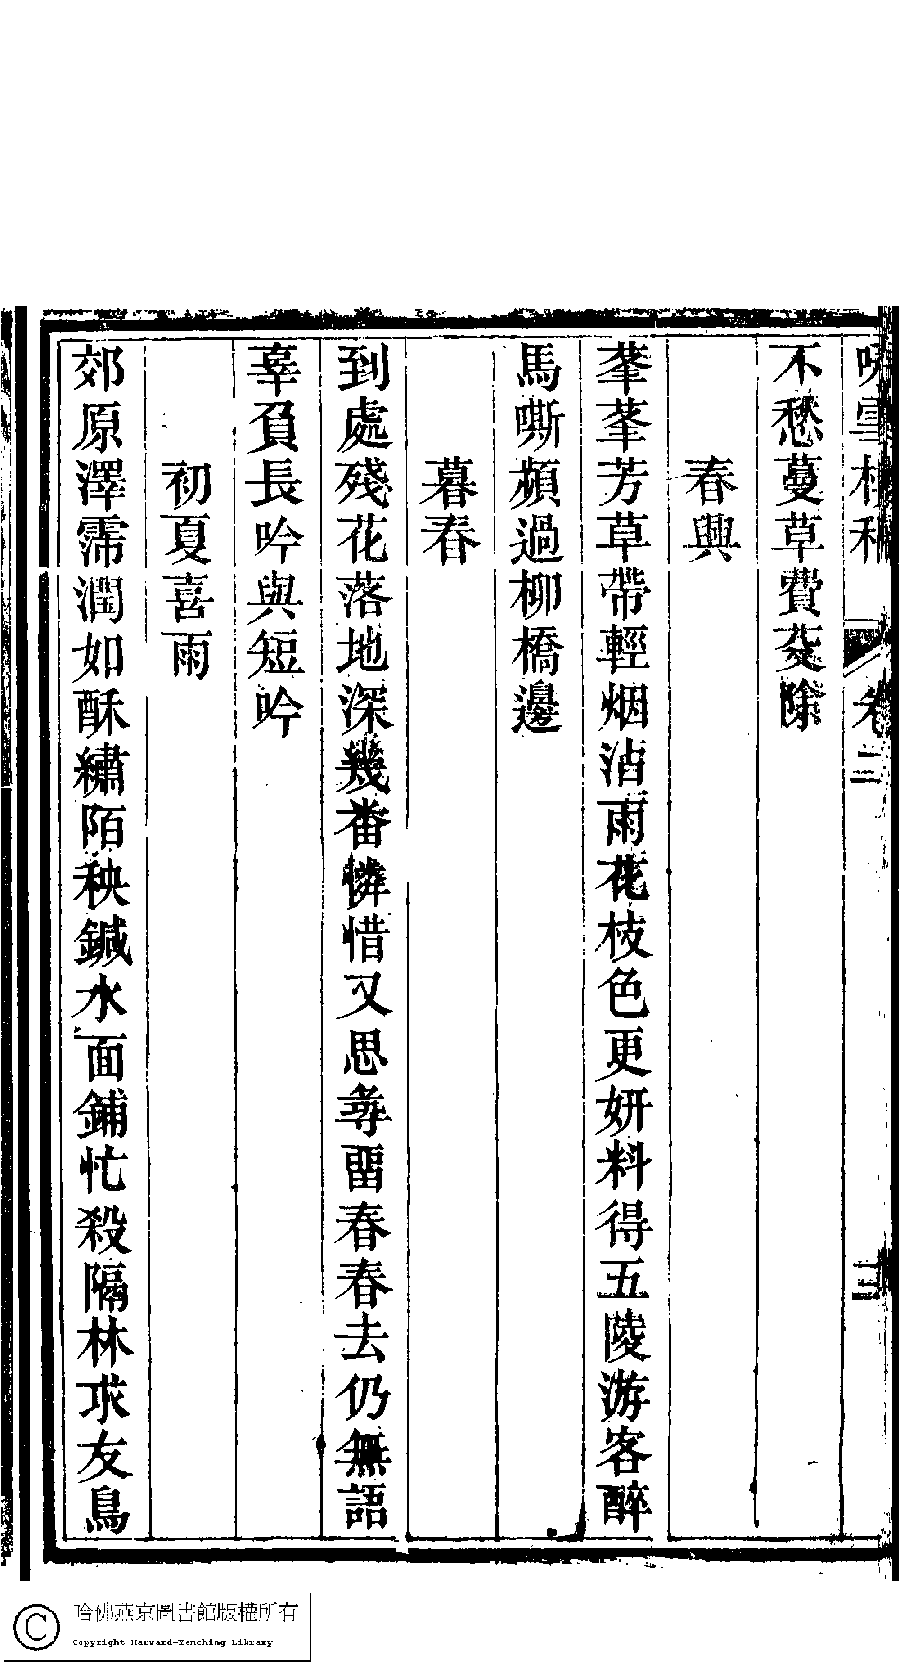 卷三
三
不愁蔓草費芟除
春興
莑莑芳草帶輕烟沾雨花枝色更妍料得五陵游客醉
馬嘶頻過柳橋邊
暮春
到處殘花落地深幾番憐惜又思尋畱春春去仍無語
辜負長吟與短吟
初夏喜雨
郊原澤霈潤如酥繡陌秧鍼水面鋪忙殺隔林求友鳥
哈佛燕京圖書館版權所有
Copyright Harvard-Yenching Library